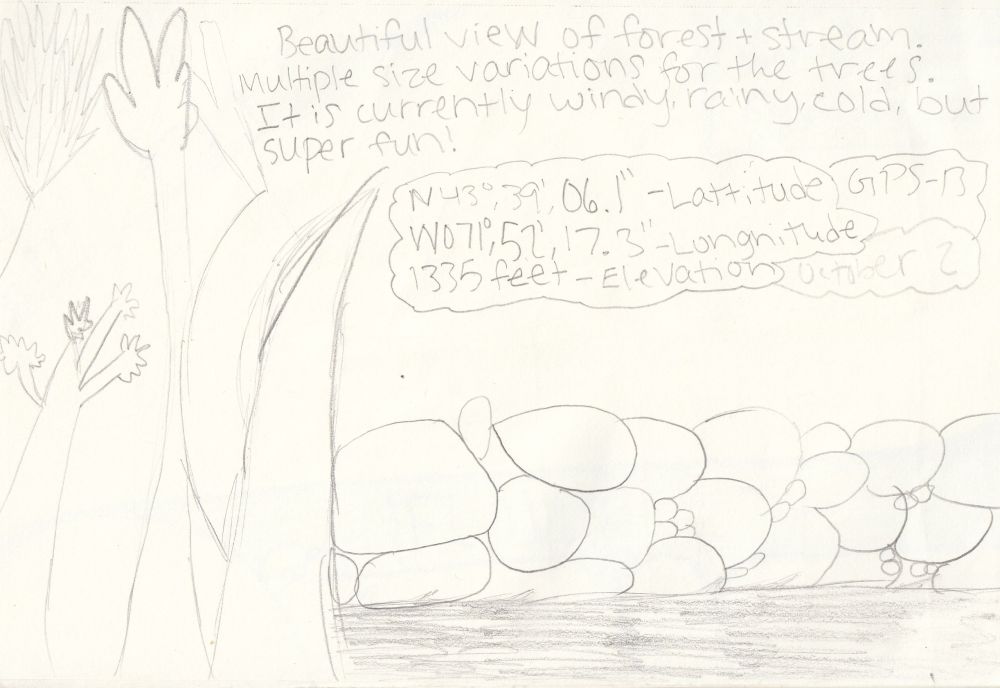 Beautiful view of forest + stream.
Multiple size variations for the trees.
It is currently windy, rainy, cold, but
super fun!
N43°, 39', 06.1" - Lattitude GPS-B
W071°, 52', 17.3" - Longnitude
1335 feet - Elevation October 2